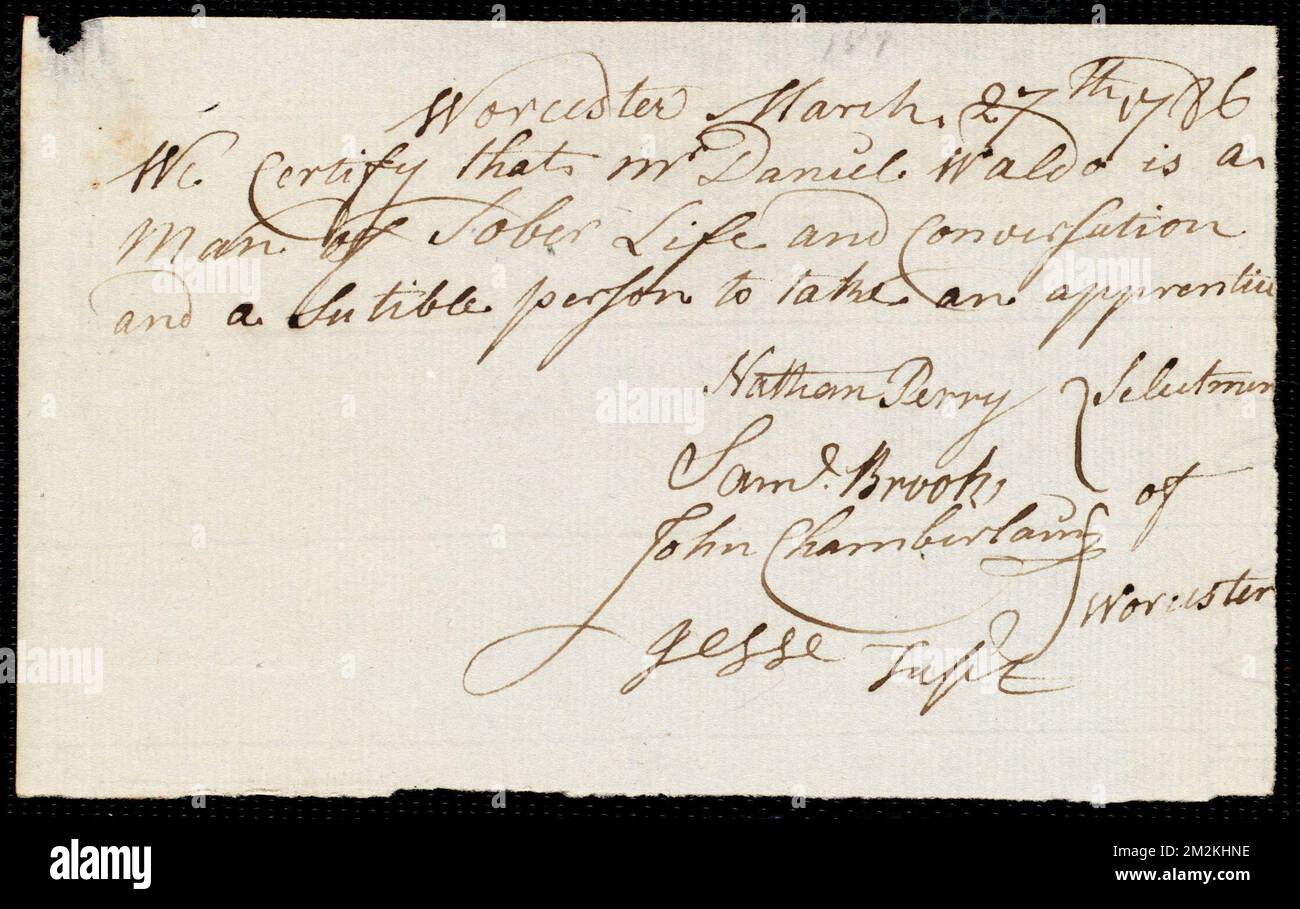 Worcester March 27th 1786
We Certify that mr Daniel Waldo is a
Man of Sober Life and Conversation
and a Sutible person to take an apprentice
Nathan Perry Selectmen
Saml. Brooks
of
John Chamberlain
Worcester
Jesse Taft
alamy
Image ID: 2M2KHNE
www.alamy.com